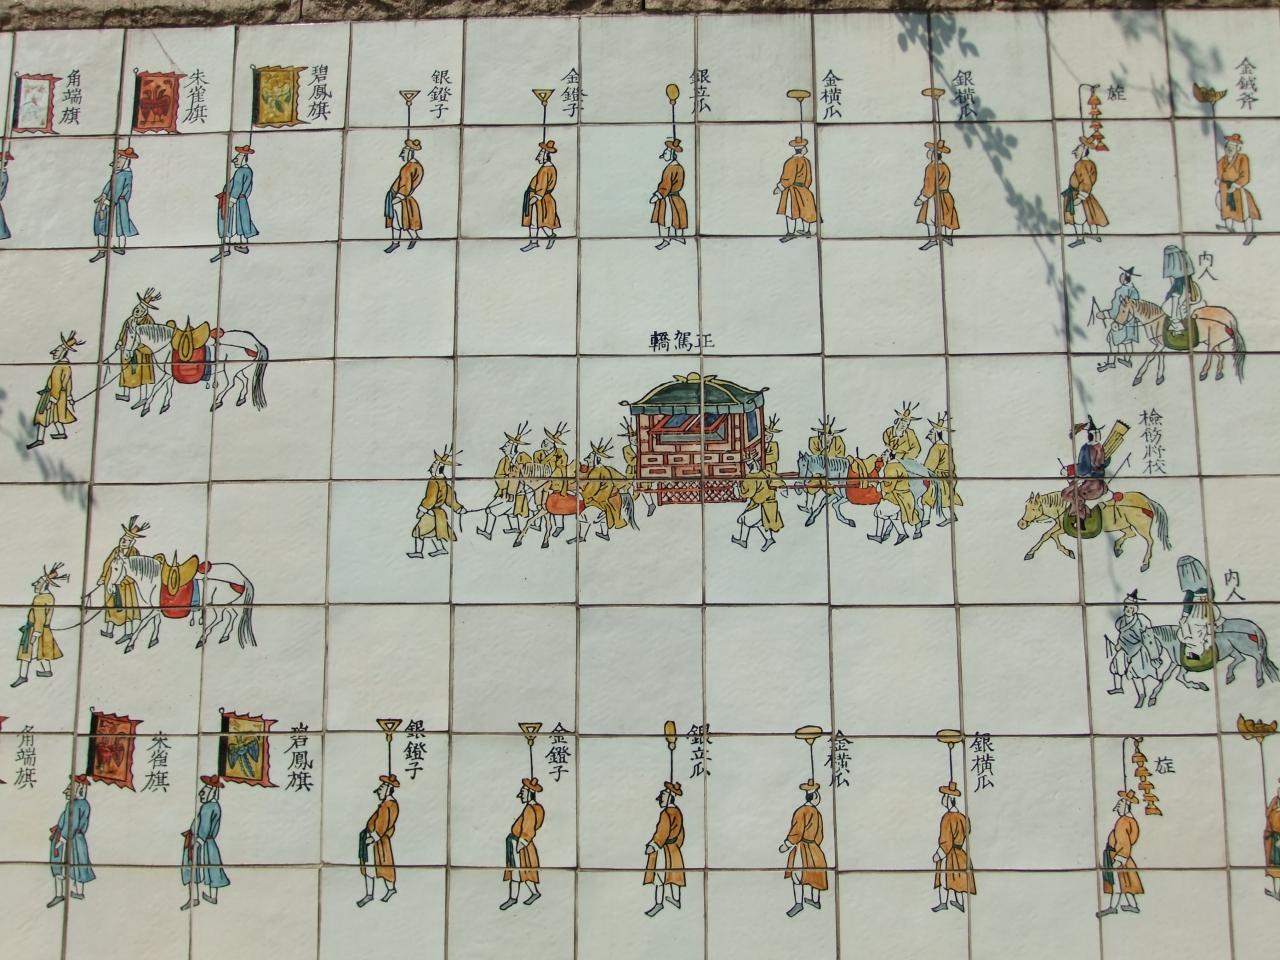 角端旗
朱雀旗
碧鳳旗
銀鐙子
金鐙子
銀立瓜
金橫瓜
銀橫瓜
旌
金鉞斧
內人
正駕轎
檢飭將校
內人
角端旗
朱雀旗
碧鳳旗
銀鐙子
金鐙子
銀立瓜
金橫瓜
銀橫瓜
旌